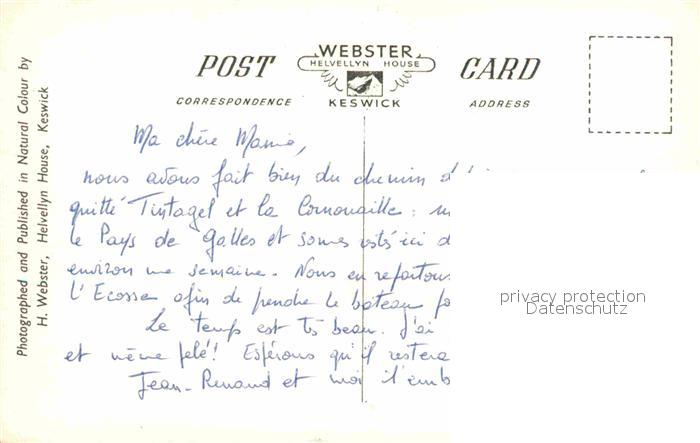 Photographed and Published in Natural Colour by
H. Webster, Helvellyn House, Keswick
POST
WEBSTER
HELVELLYN HOUSE
KESWICK
CARD
CORRESPONDENCE
ADDRESS
Ma chère Mamie,
nous avons fait bien du chemin
quitté Tintagel et la Cornouaille :
le Pays de Galles et somes restés ici d
environ une semaine. Nous en repartons
l'Ecosse afin de prendre le bateau po
Le temps est ts beau. J'ai
et même pelé! Espérons qu'il restera
Jean-Renaud et moi t'emb
privacy protection
Datenschutz